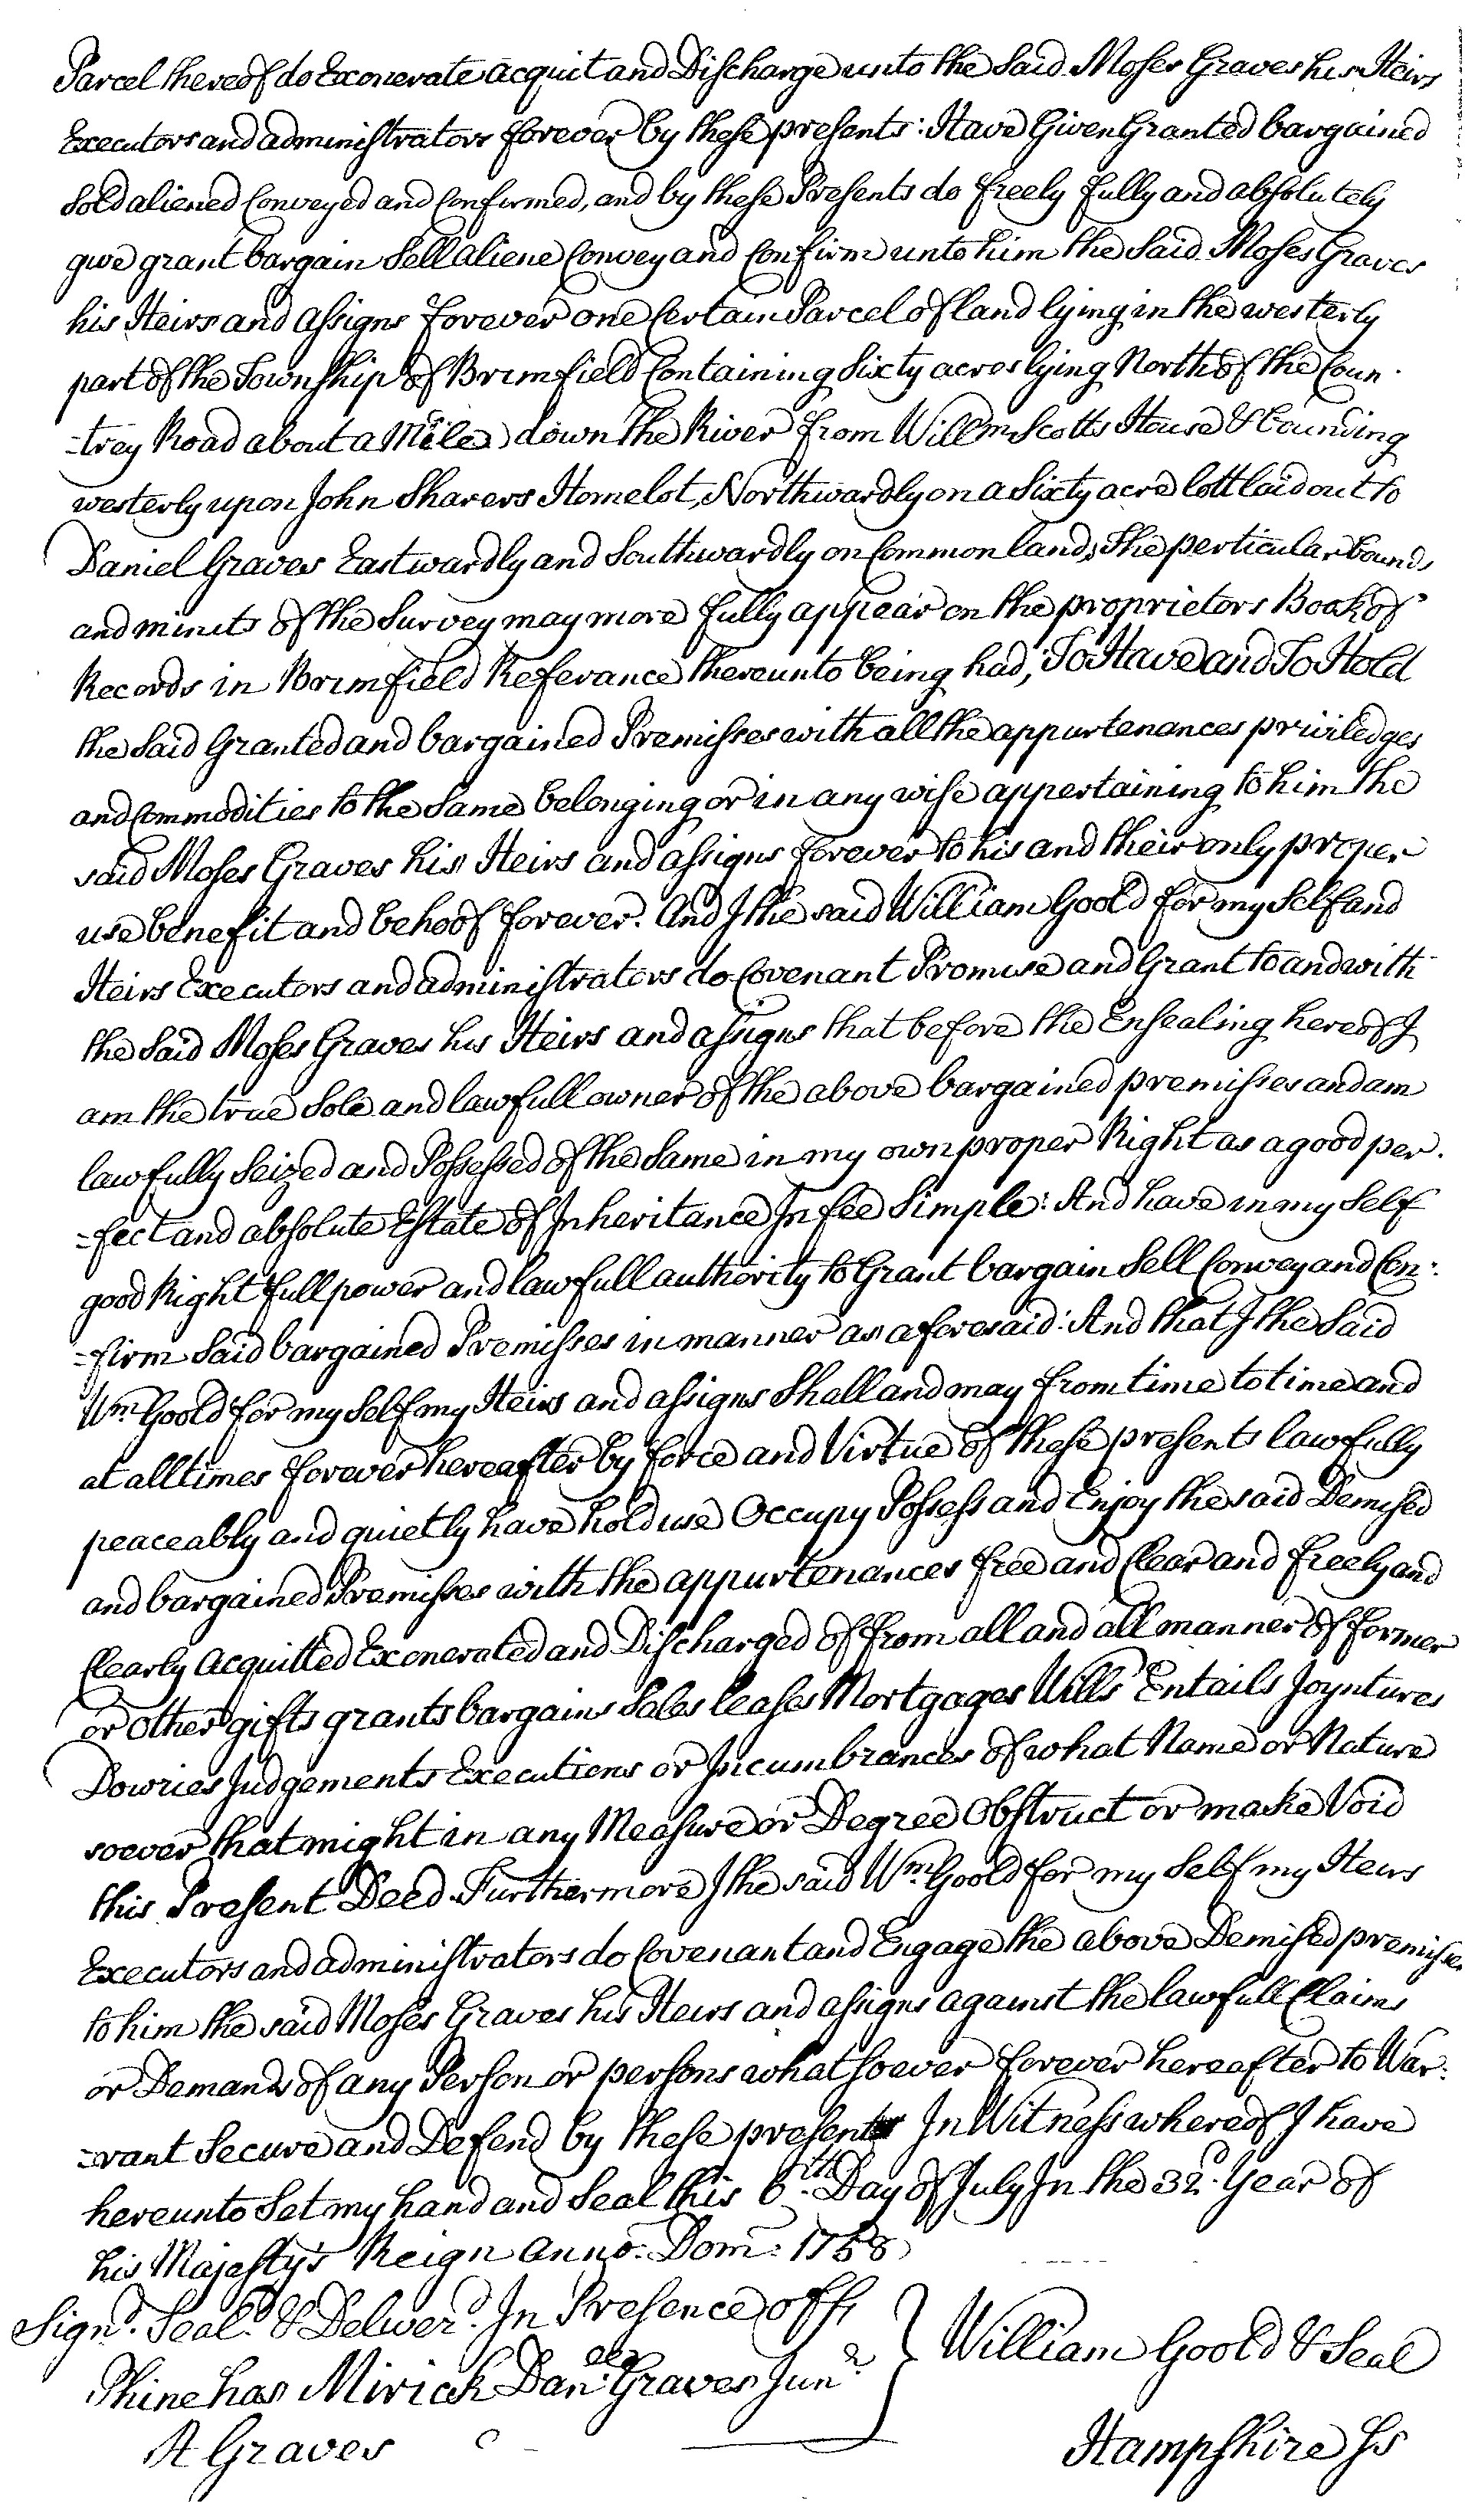 Parcel thereof do Exonerate acquit and Discharge unto the Said Moses Graves his Heirs
Executors and administrators forever by these presents: Have Given Granted bargained
Sold aliened Conveyed and Confirmed, and by these Presents do freely fully and absolutely
give grant bargain Sell aliene Convey and Confirm unto him the Said Moses Graves
his Heirs and assigns forever one Certain Parcel of land lying in the westerly
part of the Township of Brimfield Containing Sixty acres lying North of the Coun-
-trey Road about a Mile down the River from Willm Scotts House & bounding
westerly upon John Sharers Homelot, Northwardly on a Sixty acre lott laid out to
Daniel Graves Eastwardly and Southwardly on Common land, The perticular bounds
and minuts of the Survey may more fully appear on the proprietors Book of
Records in Brimfield Referance thereunto being had, To Have and To Hold
the Said Granted and bargained Premisses with all the appurtenances priviledges
and Commodities to the Same belonging or in any wise appertaining to him the
said Moses Graves his Heirs and assigns forever to his and their only proper
use benefit and behoof forever. And I the said William Goold for my Self and
Heirs Executors and administrators do Covenant Promise and Grant to and with
the Said Moses Graves his Heirs and assigns that before the Ensealing hereof I
am the true Sole and lawfull owner of the above bargained premisses and am
lawfully Seized and Possessed of the Same in my own proper Right as a good per-
-fect and absolute Estate of Inheritance In fee Simple: And have in my Self
good Right full power and lawfull authority to Grant bargain Sell Convey and Con:
-firm Said bargained Premisses in manner as aforesaid: And that I the Said
Wm. Goold for my Self my Heirs and assigns Shall and may from time to time and
at all times forever hereafter by force and Virtue of these presents lawfully
peaceably and quietly have hold use Occupy Possess and Enjoy the said Demised
and bargained Premisses with the appurtenances free and Clear and freely and
Clearly Acquitted Exonerated and Discharged of from all and all manner of former
or other gifts grants bargains Sales leases Mortgages Wills Entails Joyntures
Dowries Judgements Executions or Incumbrances of what Name or Nature
soever that might in any Measure or Degree Obstruct or make Void
this Present Deed. Furthermore I the said Wm. Goold for my Self my Heirs
Executors and administrators do Covenant and Engage the above Demised premisses
to him the said Moses Graves his Heirs and assigns against the lawfull Claims
or Demands of any Person or persons whatsoever forever hereafter to War:
-rant Secure and Defend by these presents In Witness whereof I have
hereunto Set my hand and Seal this 6th. Day of July In the 32d. Year of
his Majesty's Reign Anno: Dom: 1758
Signd. Seald. & Deliverd. In Presence off,
William Goold & Seal
Phinehas Mirick Danel. Graves Junr.
A Graves
Hampshire Ss